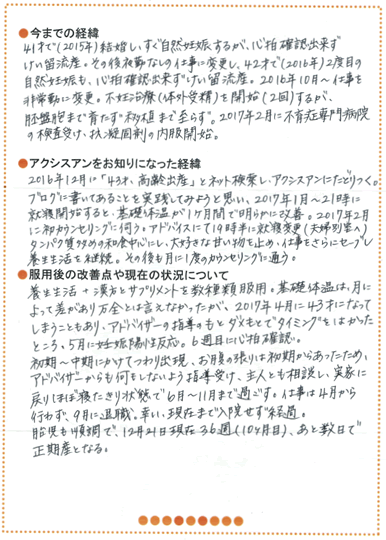 ●今までの経緯
41才で(2015年)結婚し、すぐ自然妊娠するが、心拍確認出来ず
けい留流産。その後夜勤なしの仕事に変更し、42才で(2016年)2度目の
自然妊娠も、心拍確認出来ずけい留流産。2016年10月〜仕事を
非常勤に変更。不妊治療(体外受精)を開始(2回)するが、
胚盤胞まで育たず移植まで至らず。2017年2月に不育症専門病院
の検査受け、抗凝固剤の内服開始。
●アクシスアンをお知りになった経緯
2016年12月に「43才、高齢出産」とネット検索し、アクシスアンにたどりつく。
ブログに書いてあることを実践してみようと思い、2017年1月〜21時に
就寝開始すると、基礎体温が1ヶ月間で明らかに改善。2017年2月
に初カウンセリングに伺う。アドバイスにて19時半に就寝変更(夫婦別室へ)
タンパク質多めの和食中心にし、大好きな甘い物を止め、仕事をさらにセーブし
養生生活を継続。その後も月に1度のカウンセリングに通う。
●服用後の改善点や現在の状況について
養生生活+漢方とサプリメントを数種類服用。基礎体温は、月に
よって差があり万全とは言えなかったが、2017年4月に43才になって
しまうこともあり、アドバイザーの指導のもとダメもとでタイミングをはかった
ところ、5月に妊娠陽性反応。6週目に心拍確認。
初期〜中期にかけてつわり出現、お腹の張りは初期からあったため、
アドバイザーからも何もしないよう指導受け、主人とも相談し、実家に
戻りほぼ寝たきり状態で6月〜11月まで過ごす。仕事は4月から
行わず、9月に退職。幸い、現在まで入院せず経過。
胎児も順調で、12月21日現在36週(10ヶ月目)、あと数日で
正期産となる。